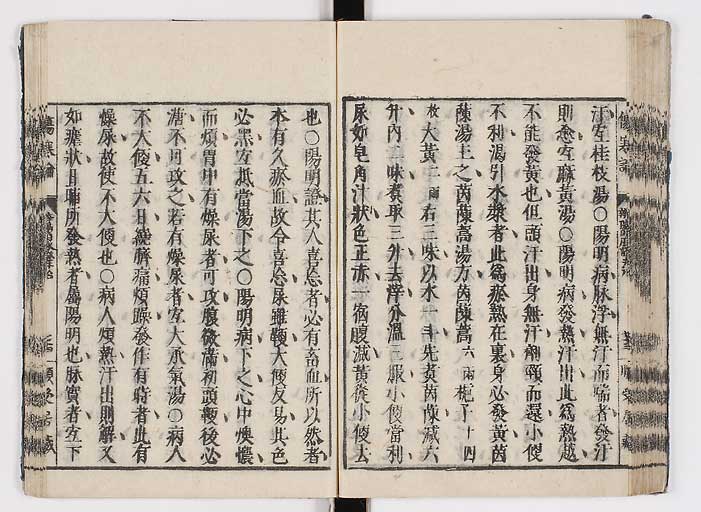 傷寒論
汗宜桂枝湯〇陽明病脉浮無汗而喘者發汗
則愈宜麻黃湯〇陽明病發熱汗出此爲熱越
不能發黃也但頭汗出身無汗劑頸而還小便
不利渴引水漿者此爲瘀熱在裏身必發黃茵
蔯湯主之茵蔯蒿湯方茵蔯蒿六兩梔子十四
枚大黃二兩右三味以水一斗先煮茵蔯減六
升內二味煮取三升去滓分溫三服小便當利
尿如皂角汁狀色正赤一宿腹減黃從小便去
也〇陽明證其人喜忘者必有畜血所以然者
本有久瘀血故令喜忘屎雖鞕大便反易其色
必黑宜抵當湯下之〇陽明病下之心中懊憹
而煩胃中有燥屎者可攻腹微滿初頭鞕後必
溏不可攻之若有燥屎者宜大承氣湯〇病人
不大便五六日繞臍痛煩躁發作有時者此有
燥屎故使不大便也〇病人煩熱汗出則解又
如瘧狀日晡所發熱者屬陽明也脉實者宜下
傷寒論